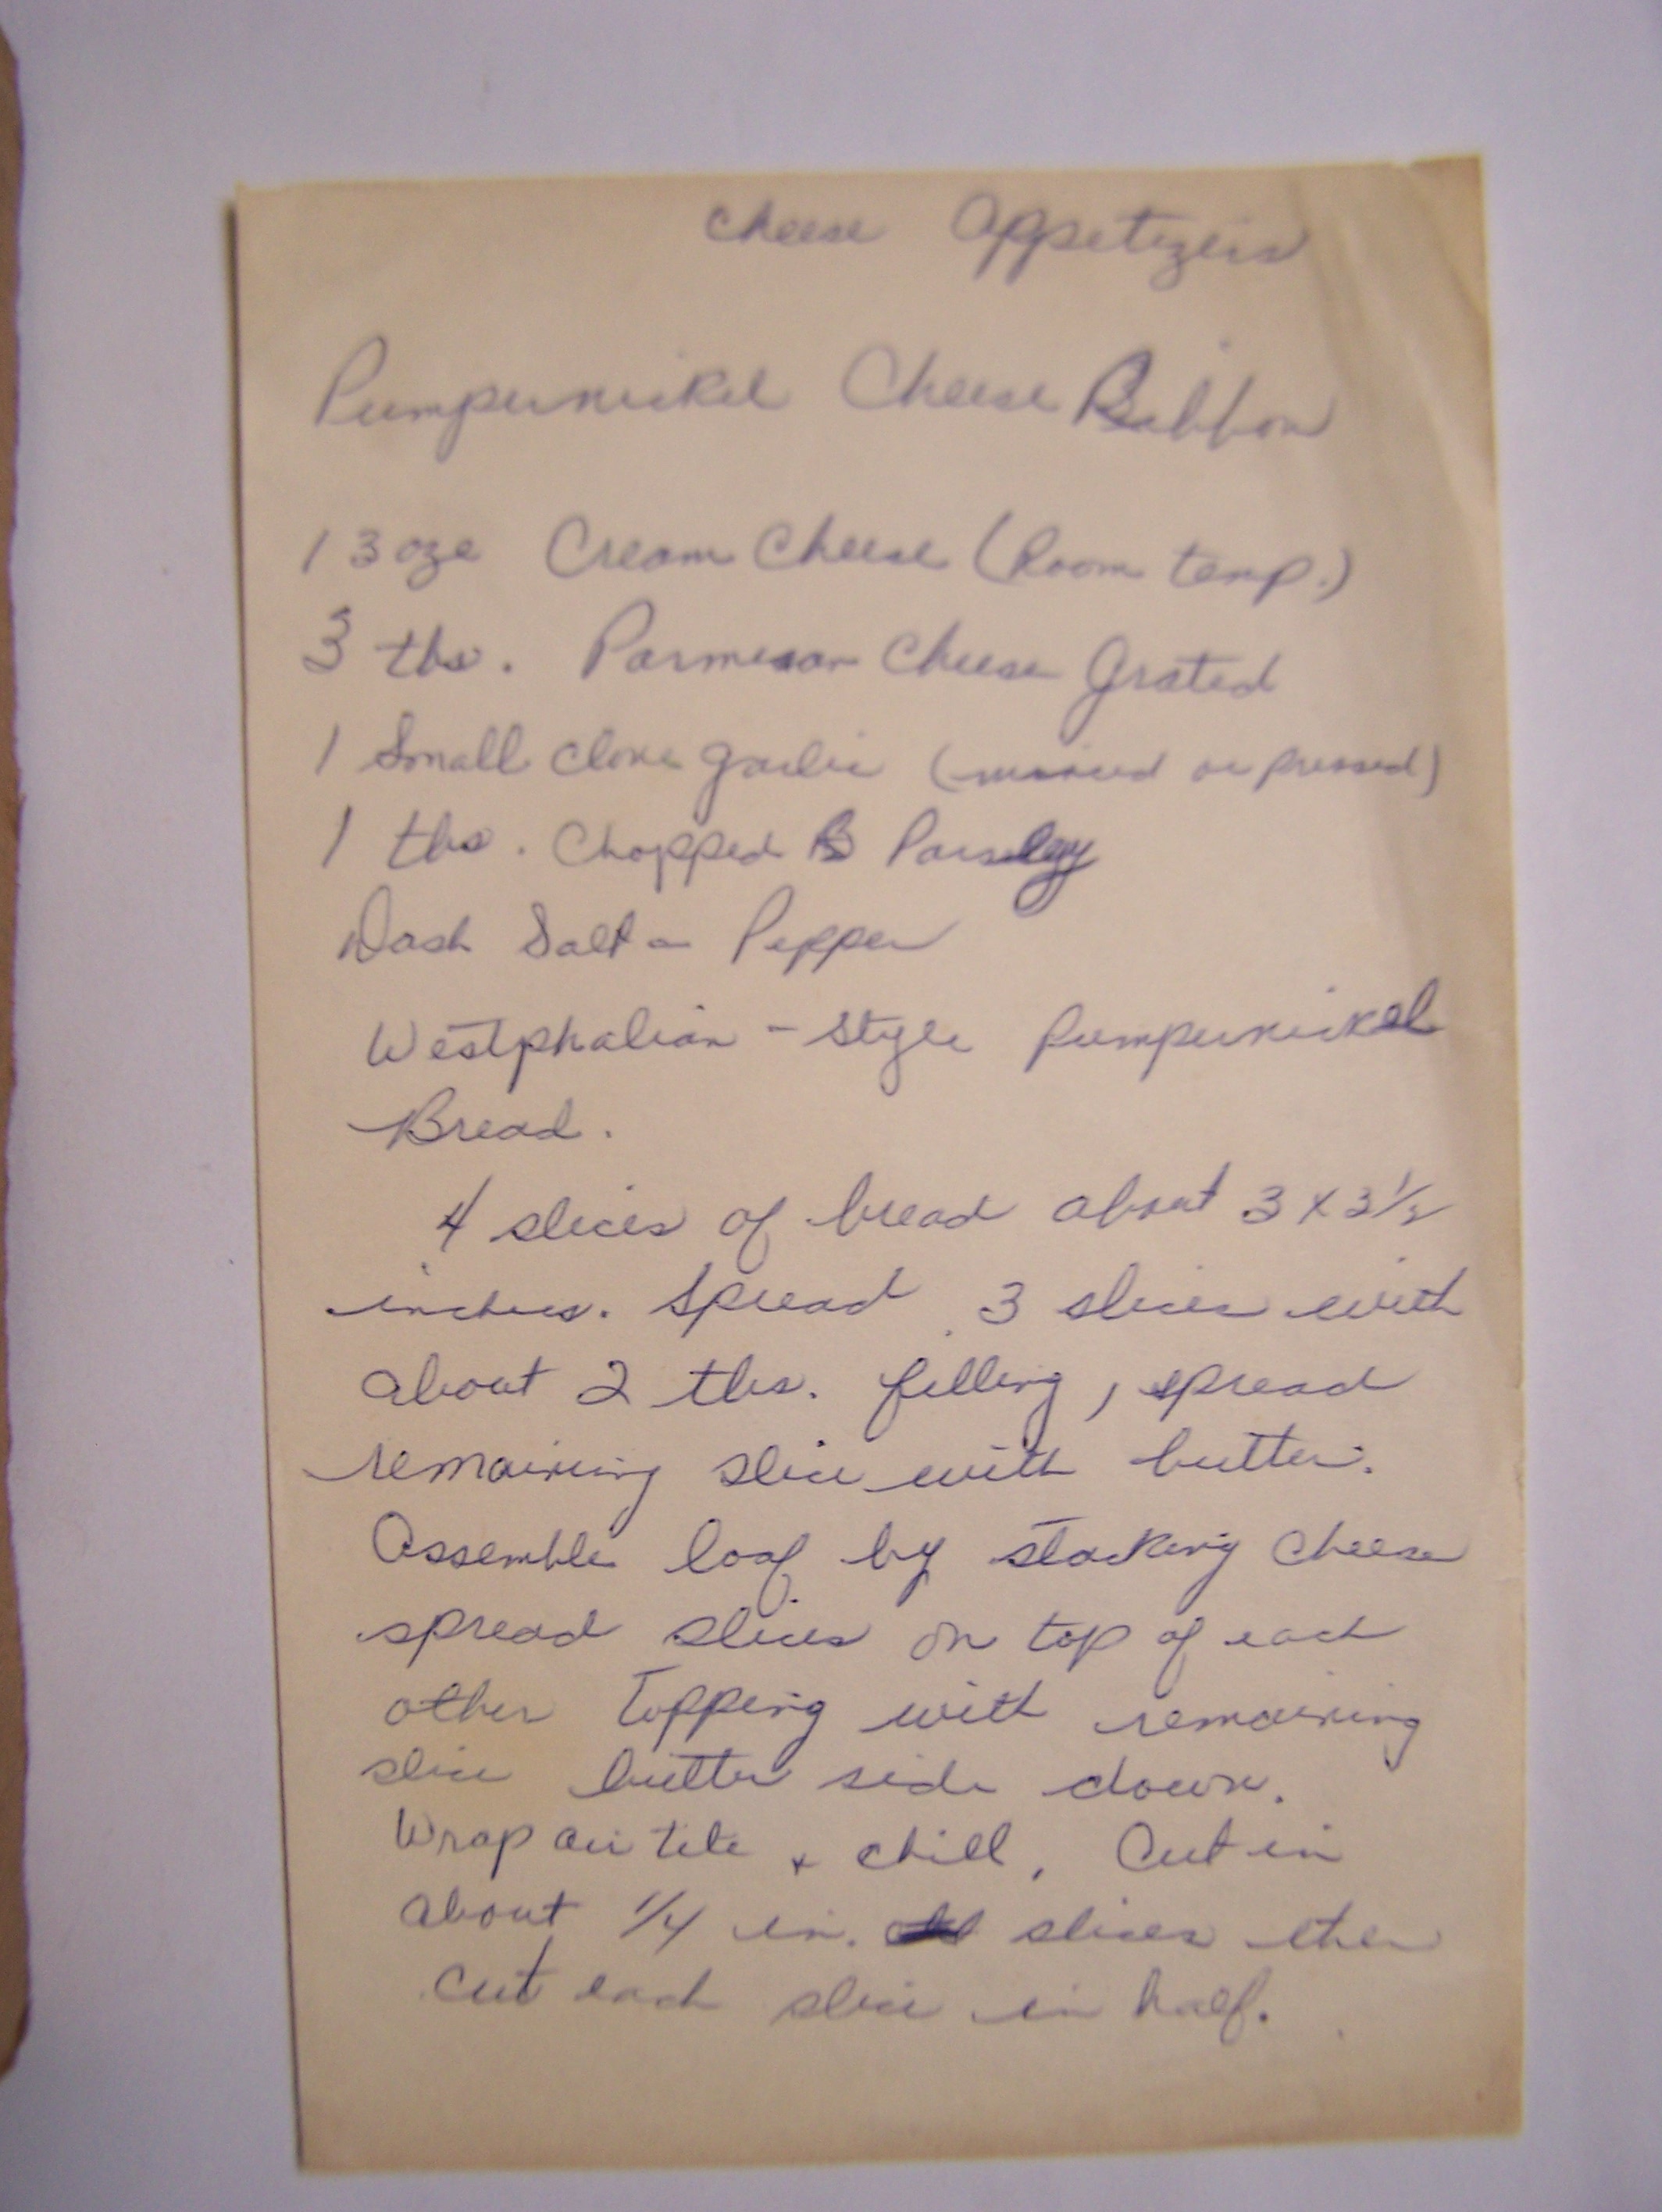 Cheese Appetizers
Pumpernickel Cheese Ribbon
1 3 oze Cream Cheese (Room temp.)
3 tbs. Parmesan Cheese Grated
1 Small clove garlic (minced or pressed)
1 tbs. Chopped Parsley
Dash Salt - Pepper
Westphalian - Style Pumpernickel
Bread.
4 slices of bread about 3 x 3 1/2
inches. Spread 3 slices with
about 2 tbs. filling, spread
remaining slice with butter.
Assemble loaf by stacking cheese
spread slices on top of each
other Topping with remaining
slice butter side down.
Wrap air tite + chill. Cut in
about 1/4 in. slices then
cut each slice in half.